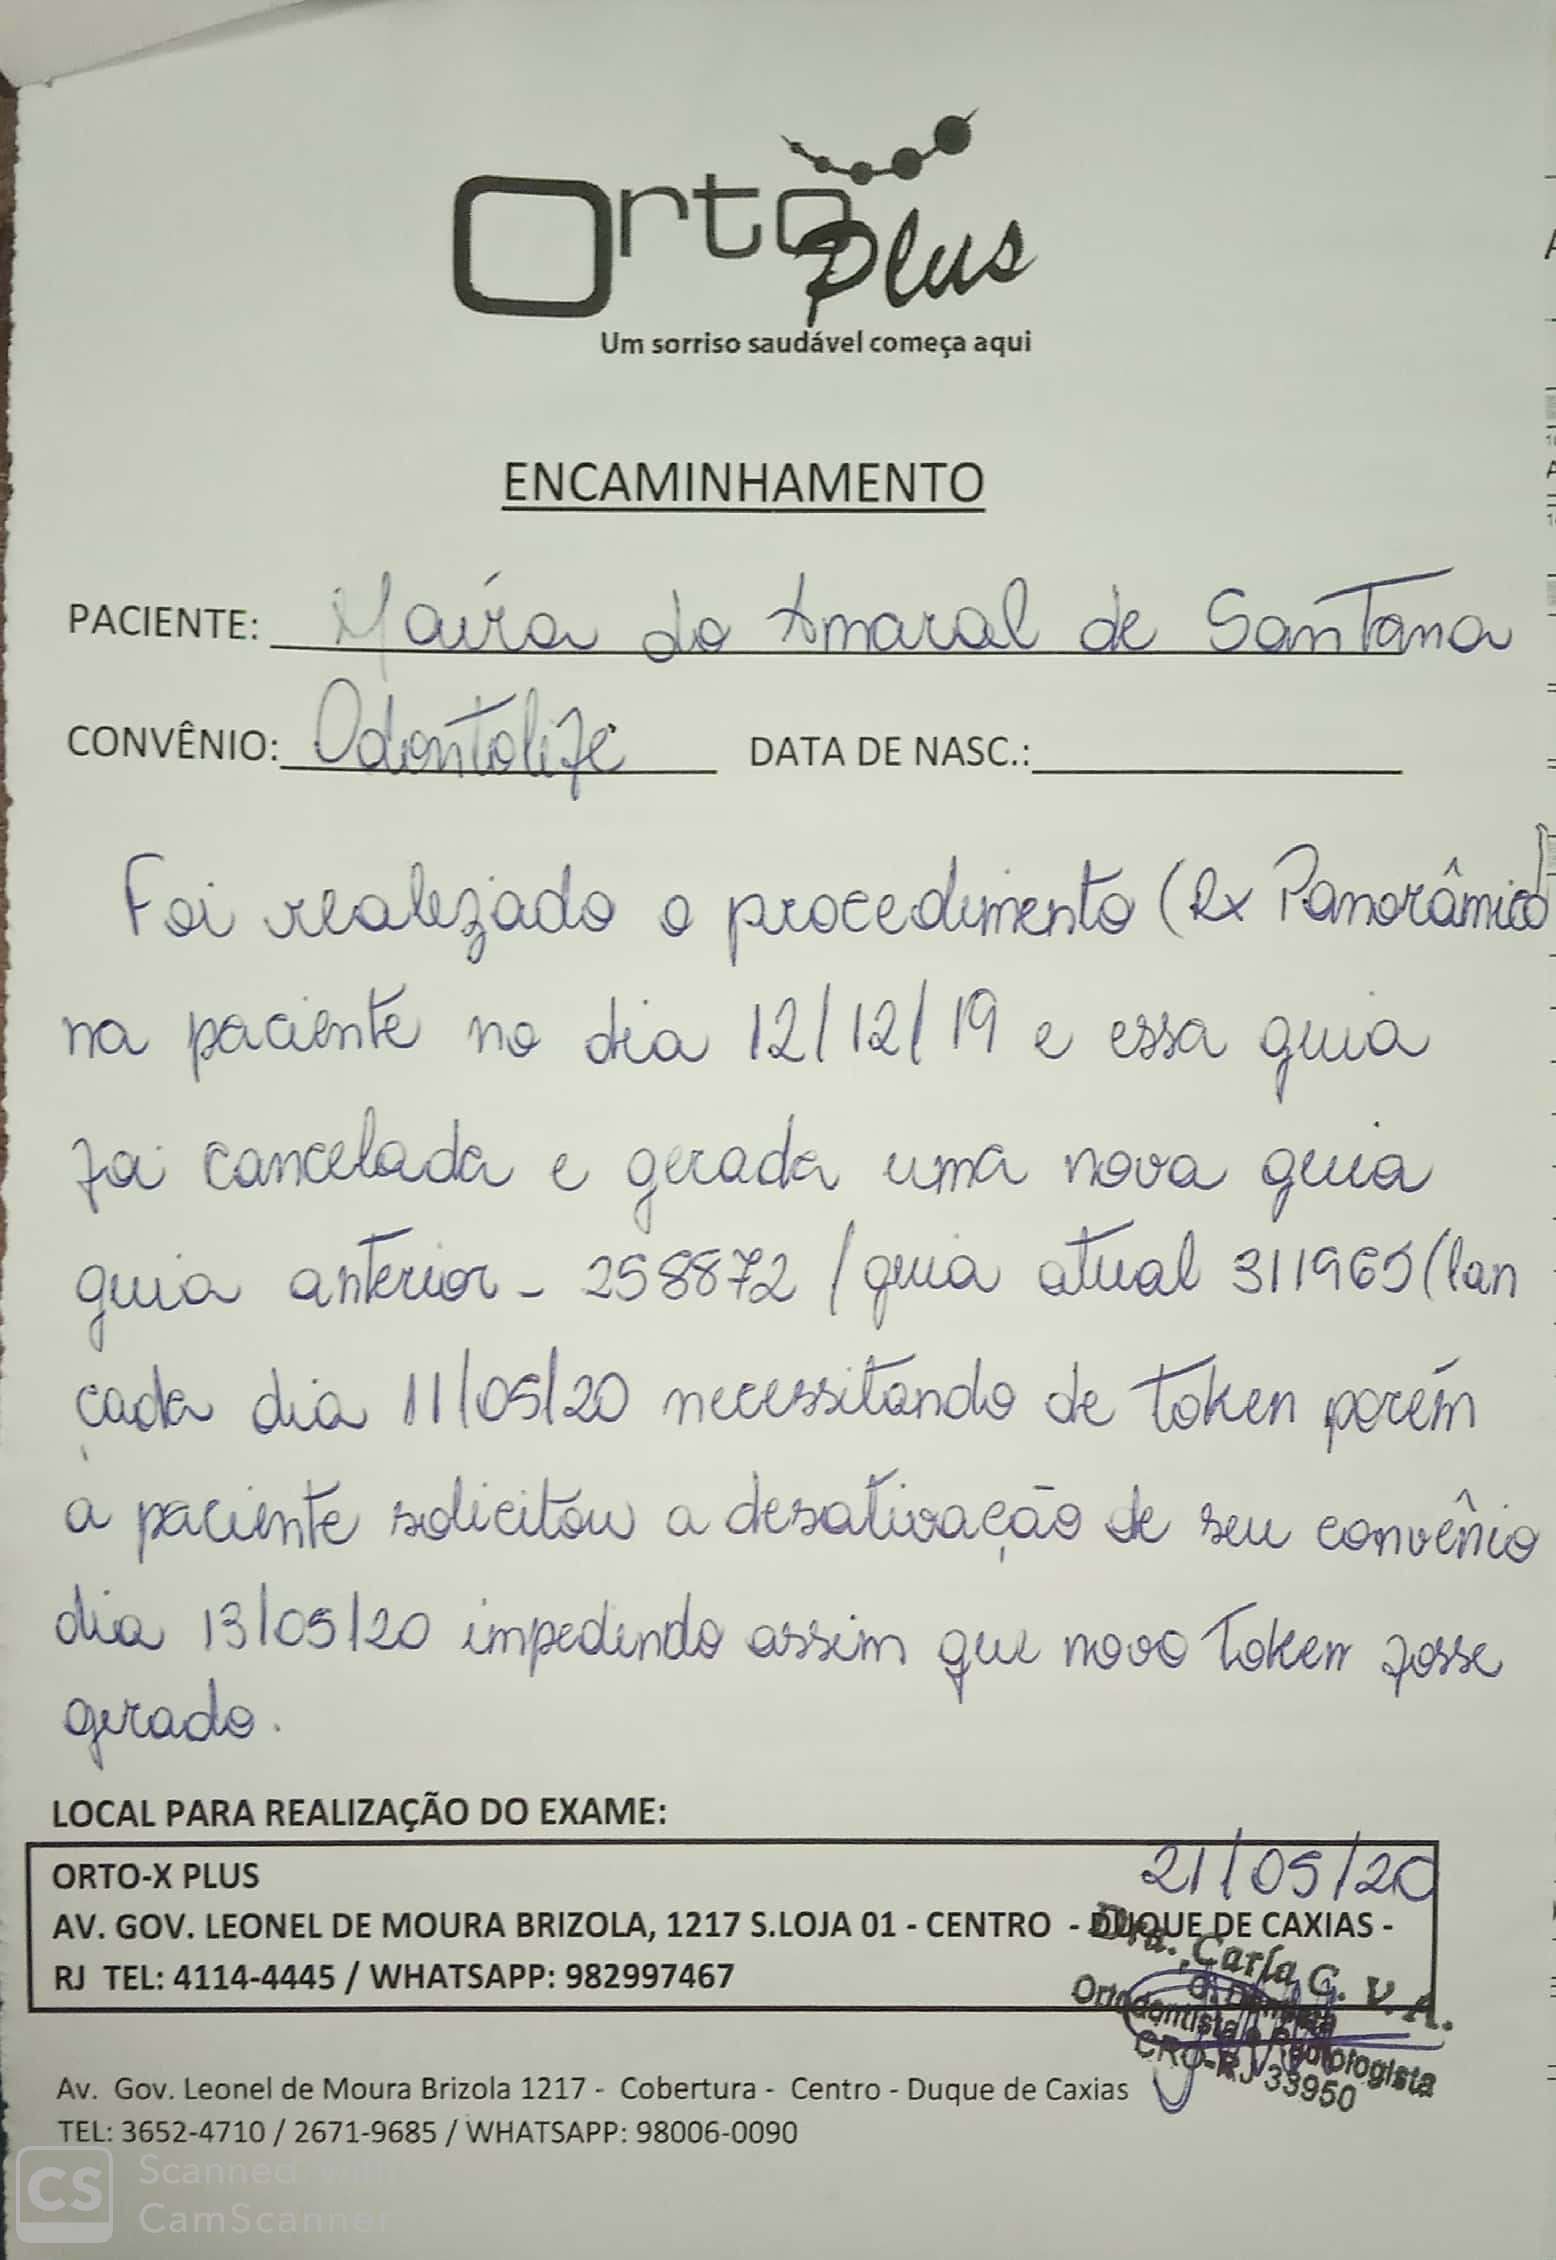 Orto Plus
Um sorriso saudável começa aqui
ENCAMINHAMENTO
PACIENTE: Maíra do Amaral de Santana
CONVÊNIO: Odontolife DATA DE NASC.:
Foi realizado o procedimento (Rx Panorâmico)
na paciente no dia 12/12/19 e essa guia
foi cancelada e gerada uma nova guia
guia anterior - 258872 / guia atual 311965 (lan
çada dia 11/05/20 necessitando de token porém
a paciente solicitou a desativação de seu convênio
dia 13/05/20 impedindo assim que novo token fosse
gerado.
LOCAL PARA REALIZAÇÃO DO EXAME:
21/05/20
ORTO-X PLUS
AV. GOV. LEONEL DE MOURA BRIZOLA, 1217 S.LOJA 01 - CENTRO - DUQUE DE CAXIAS -
RJ TEL: 4114-4445 / WHATSAPP: 982997467
Dra. Carla C. V. A.
Ortodontista e Radiologista
CRO-RJ 33950
Av. Gov. Leonel de Moura Brizola 1217 - Cobertura - Centro - Duque de Caxias
TEL: 3652-4710 / 2671-9685 / WHATSAPP: 98006-0090
CS Scanned with
CamScanner